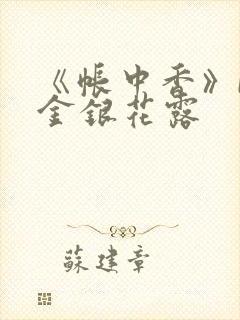 《帳中香》
金銀花露
蘇建章